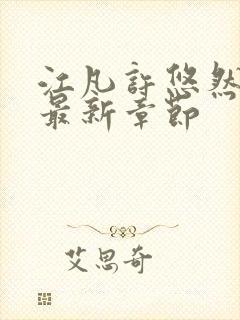 江凡许悠然
最新章节
艾思奇